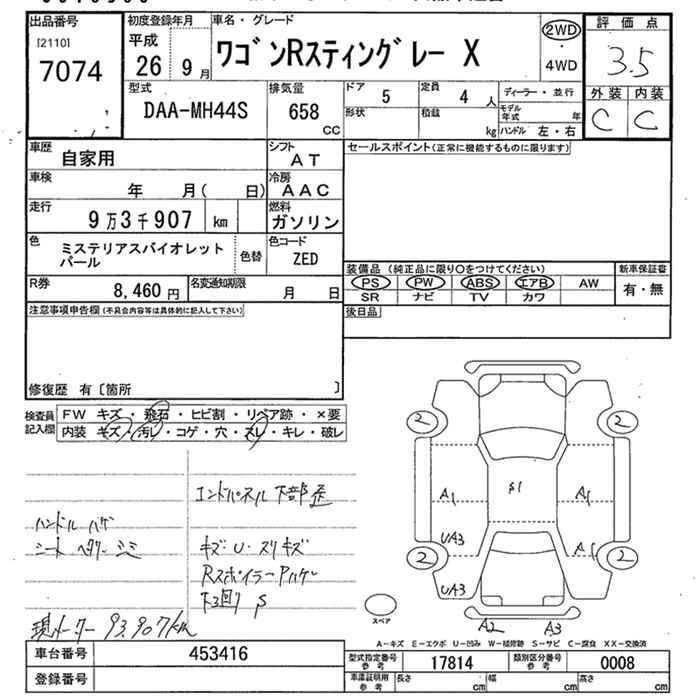 出品番号
[2110]
7074
初度登録年月
平成
26 9月
車名・グレード
ワゴンRスティングレー X
2WD
・
4WD
評価点
3.5
外装 内装
C C
型式
DAA-MH44S
排気量
658
CC
ドア
5
定員
4 人
ディーラー・並行
形状
積載
kg
モデル年式 年
ハンドル 左・右
車歴
自家用
シフト
AT
セールスポイント(正常に機能するものに限ります)
車検
年 月( 日)
冷房
AAC
走行
9万3千907 km
燃料
ガソリン
色
ミステリアスバイオレット
パール
色替
色コード
ZED
装備品 (純正品に限り○をつけてください)
新車保証書
PS PW ABS エアB AW
有・無
SR ナビ TV カワ
R券
8,460 円
名変通知期限
月 日
後日品
注意事項申告欄(不具合内容等は具体的に記入して下さい)
修復歴 有〔箇所 〕
検査員
記入欄
FW キズ・飛石・ヒビ割・リペア跡・×要
内装 キズ・汚レ・コゲ・穴・スレ・キレ・破レ
エンドパネル下部歪
ハンドルハゲ
シート ヘタリー シミ
キズ・U・スリキズ
RスポイラーPハゲ
下回り S
現メーター 93,907km
2 2
A1 S1 A1
UA3 A1
2 2
UA3
A2 A3
スペア
A-キズ E-エクボ U-凹み W-補修跡 S-サビ C-腐食 XX-交換済
車台番号
453416
型式指定番号
参考
17814
類別区分番号
参考
0008
登録番号
車庫証明用
参考
長さ cm 幅 cm 高さ cm